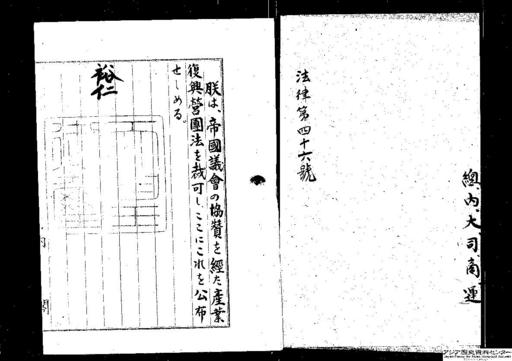 法律第四十六號
總、内、大、司、商、運
朕は、帝國議會の協賛を經た産業
復興營團法を裁可し、ここにこれを公布
せしめる。
裕仁
内閣
アジア歴史資料センター